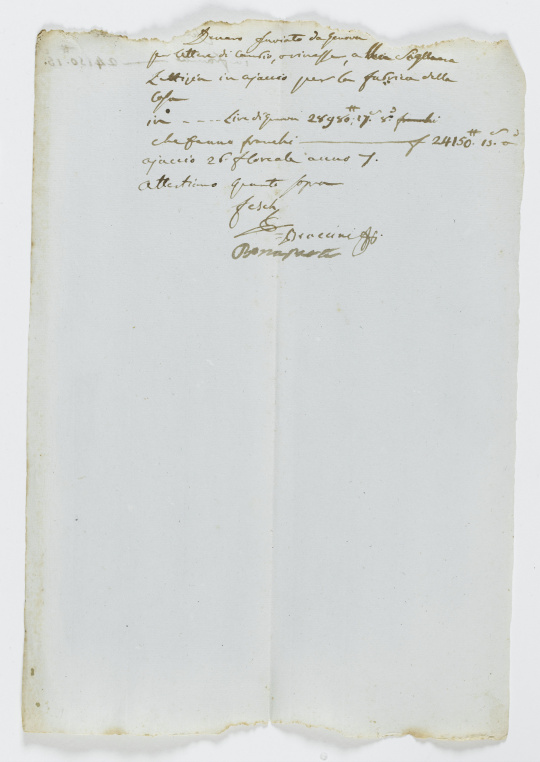 Denaro inviato da Genova
per lettere di cambio, o rimesse, alla Sigra
Lettizia in ajaccio per la fabrica della
Casa
in - - - - Lire di Genova 28980.tt 17.s 8.d
che fanno franchi ———— f 24150.tt 13.s
ajaccio 26 floreale anno 7.
attestiamo quanto sopra
fesch
Braccini
Bonaparte
24150.13.